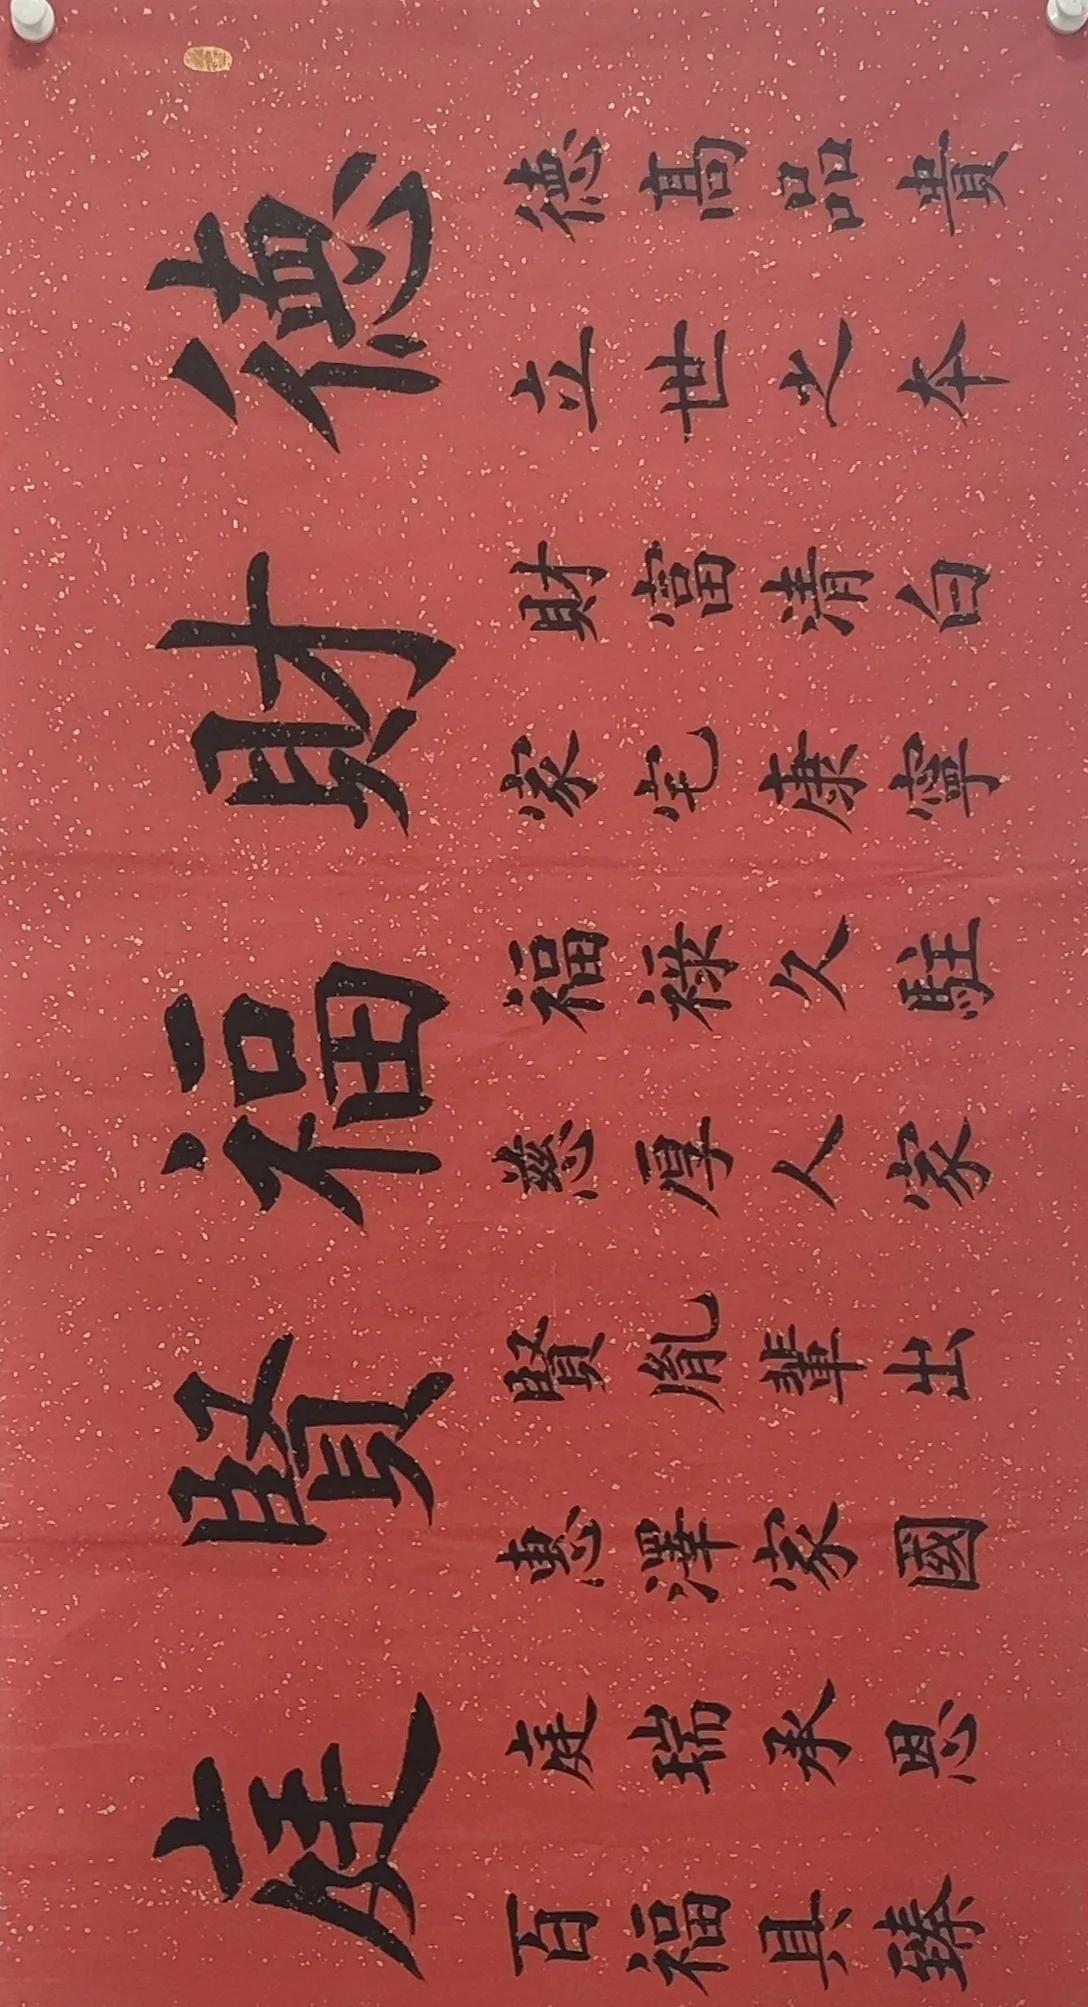 德財福賢庭
德髙品貴
立世之本
財富清白
家宅康寧
福祿久駐
慈厚人家
賢胤輩出
惠澤家國
庭瑞承恩
百福具臻